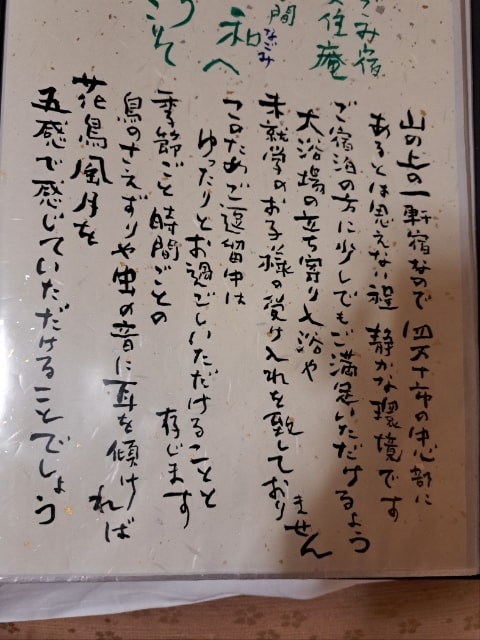 ごみ宿
住庵
間なごみ
和へ
うこそ
山の上の一軒宿なので 四万十市の中心部に
あるとは思えない程 静かな環境です
ご宿泊の方に少しでもご満足いただけるよう
大浴場の立ち寄り入浴や
未就学のお子様の受け入れを致しておりません
このためご逗留中は
ゆったりとお過ごしいただけることと存じます
季節ごと時間ごとの
鳥のさえずりや虫の音に耳を傾ければ
花鳥風月を
五感で感じていただけることでしょう